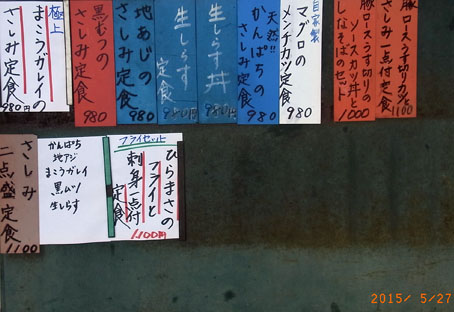 豚ロースうす切りカツ
刺身一点付定食
1100
豚ロースうす切りの
ソースカツ丼と
しなそばのセット
1000
自家製
マグロの
メンチカツ定食
980
天然!!
かんぱちの
さしみ定食
980
生しらす丼
980円
生しらす
定食
980円
地あじの
さしみ定食
980
黒むつの
さしみ定食
980
極上
まこうガレイの
さしみ定食
980円
フライセット
ひらまさの
フライと
刺身一点付
定食
1100円
かんぱち
地アジ
まこうガレイ
黒ムツ
生しらす
さしみ
二点盛定食
1100
2015/ 5/27